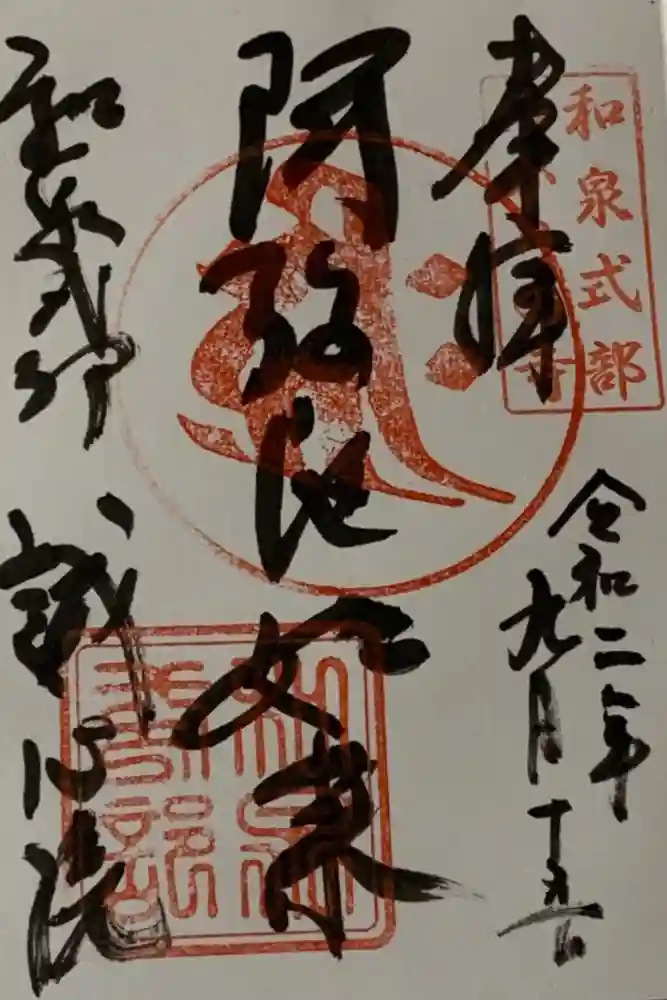 和泉式部
奉拝
令和二年
九月十五日
阿弥陀如来
和泉式部 誠心院
和泉
式部